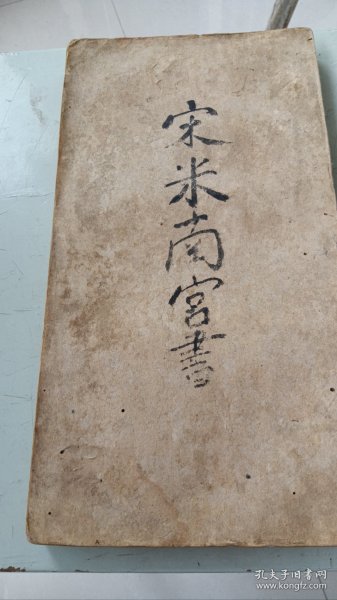 宋米南宫書
孔夫子旧书网
www.kongfz.com